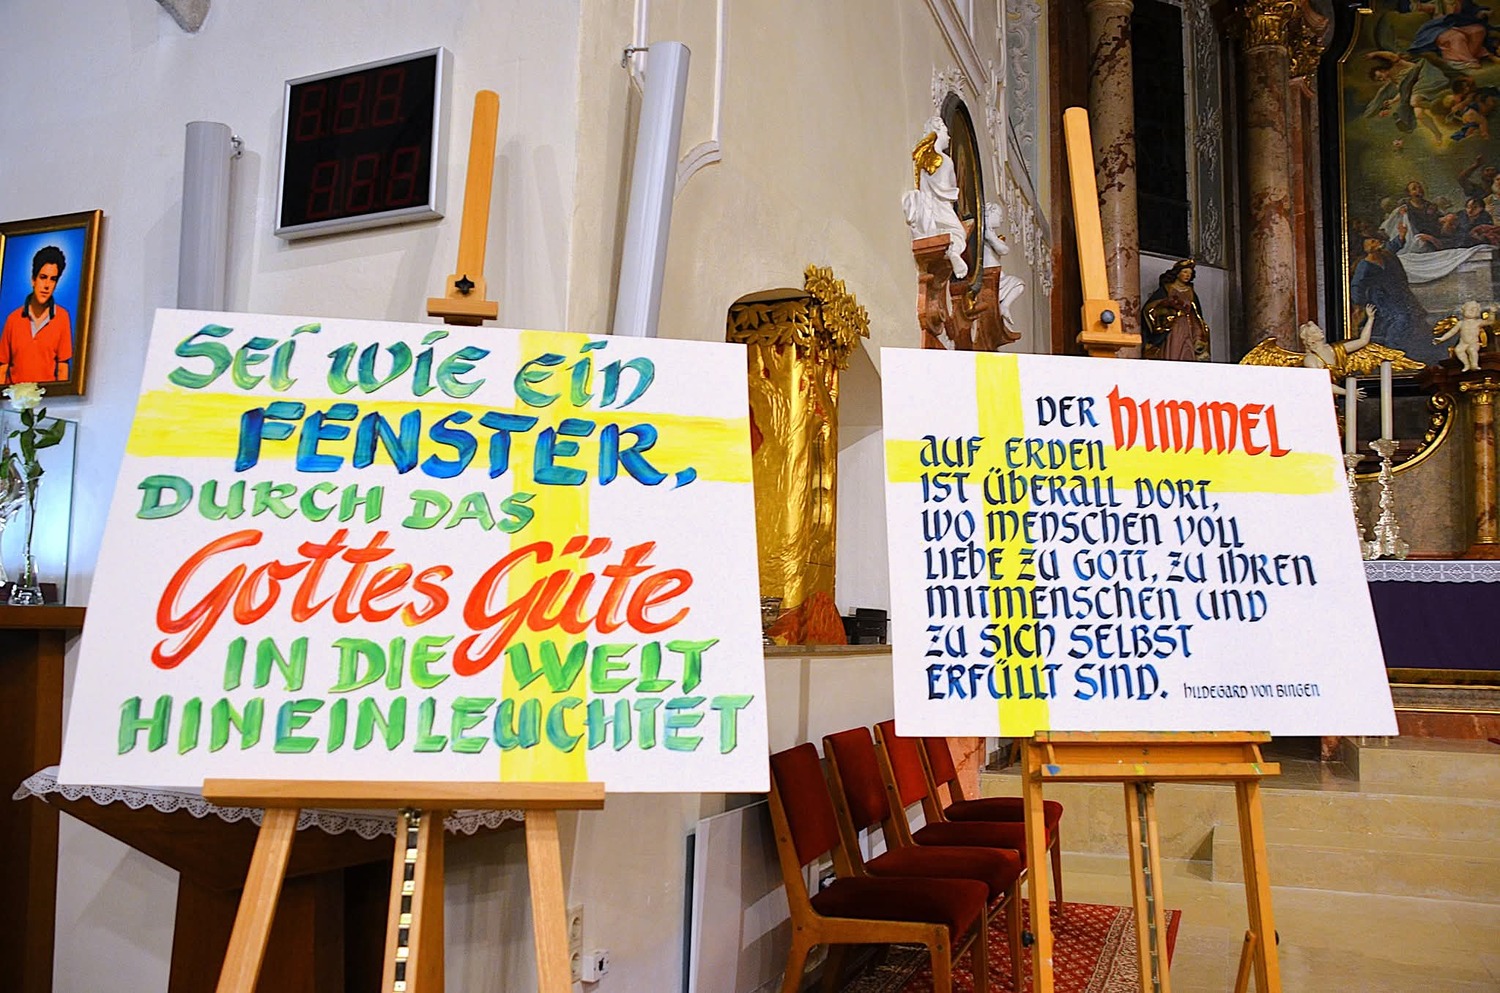 Sei wie ein
FENSTER,
DURCH DAS
Gottes Güte
IN DIE WELT
HINEINLEUCHTET
DER HIMMEL
AUF ERDEN
IST ÜBERALL DORT,
WO MENSCHEN VOLL
LIEBE ZU GOTT, ZU IHREN
MITMENSCHEN UND
ZU SICH SELBST
ERFÜLLT SIND. HILDEGARD VON BINGEN